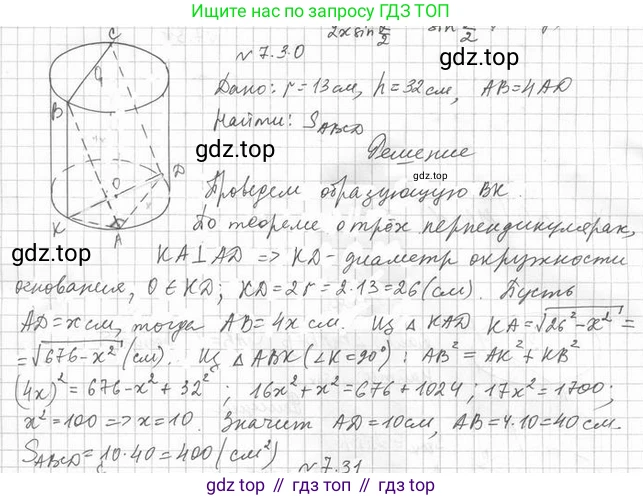 Ищите нас в поиске ГДЗ ТОП
2x sin x/2 sin x/2
№ 7.30
gdz.top
Дано: r = 13 см, h = 32 см, AB = 4AD
Найти: S ABCD
gdz.top
Решение
Проведем образующую BK.
По теореме о трёх перпендикулярах,
gdz.top
KA ⊥ AD => KD - диаметр окружности
основания, O ∈ KD; KD = 2r = 2·13 = 26 (см). Пусть
AD = x см, тогда AB = 4x см. Из △ KAD KA = √26² - x² =
= √676 - x² (см). Из △ ABK (∠K = 90°): AB² = AK² + KB²
(4x)² = 676 - x² + 32²; 16x² + x² = 676 + 1024; 17x² = 1700;
x² = 100 => x = 10. Значит AD = 10 см, AB = 4·10 = 40 см.
S ABCD = 10·40 = 400 (см²)
№ 7.31
C
B
D
O
K
A
gdz.top // gdz.top // gdz.top